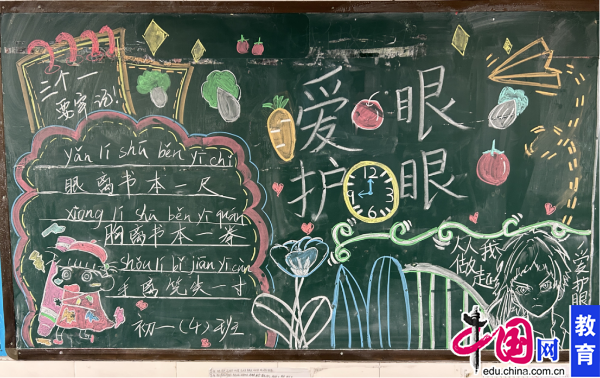 三个一
要牢记!
yǎn lí shū běn yì chǐ
眼离书本一尺
xiōng lí shū běn yì quán
胸离书本一拳
shǒu lí bǐ jiān yí cùn
手离笔尖一寸
初一(4)班
爱眼
护眼
12
3
6
9
从我
做起
爱护眼
中国网
edu.china.com.cn
教育